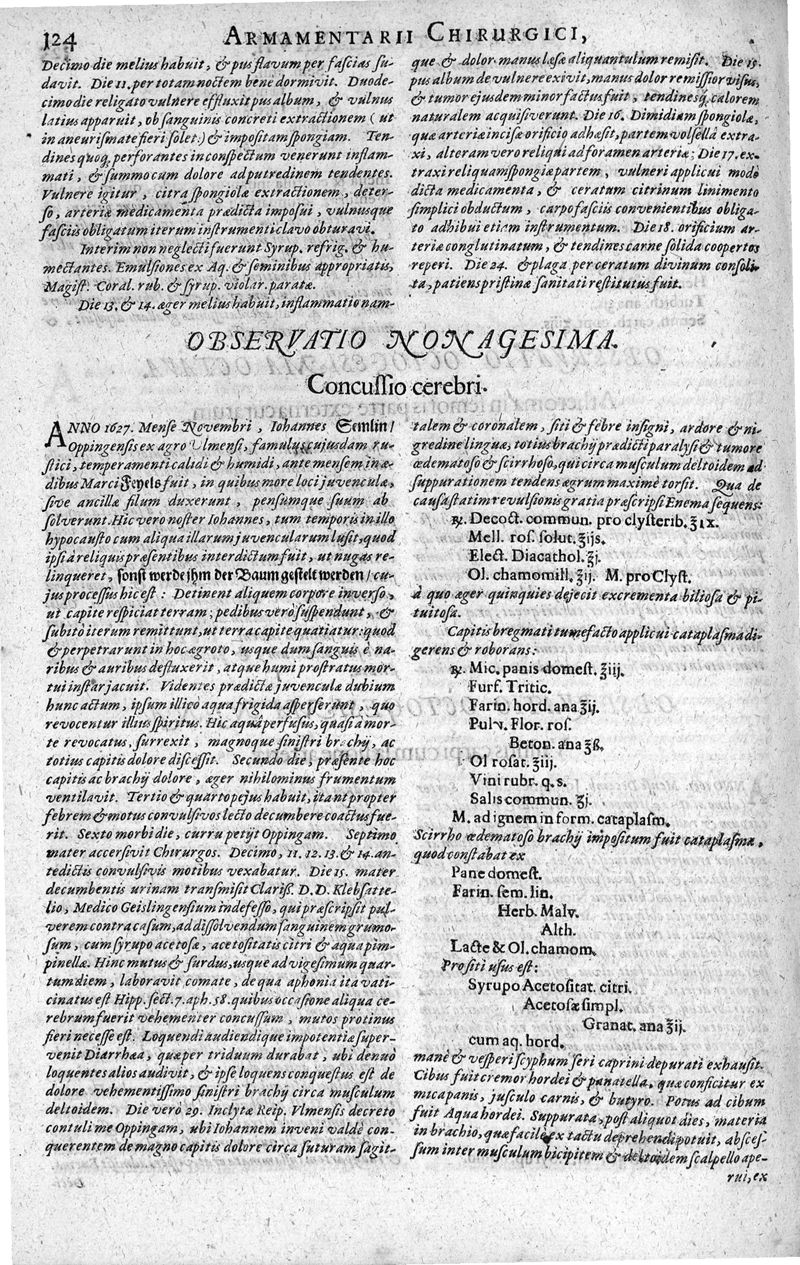 124 ARMAMENTARII CHIRURGICI,
Decimo die melius habuit, & pus flavum per fascias su-
davit. Die 11. per totam noctem bene dormivit. Duode-
cimo die religato vulnere effluxit pus album, & vulnus
latius apparuit, ob sanguinis concreti extractionem (ut
in aneurismate fieri solet:) & impositam spongiam. Ten-
dines quoq; perforantes in conspectum venerunt inflam-
mati, & summo cum dolore ad putredinem tendentes.
Vulnere igitur, citra spongiolæ extractionem, deter-
so, arteriæ medicamenta prædicta imposui, vulnusque
fasciis obligatum iterum instrumenti clavo obturavi.
Interim non neglecti fuerunt Syrup. refrig. & hu-
mectantes. Emulsiones ex Aq. & seminibus appropriatis,
Magist. Coral. rub. & syrup. violar. paratæ.
Die 13. & 14. æger melius habuit, inflammatio nam-
que & dolor manus læsæ aliquantulum remisit. Die 15.
pus album de vulnere exivit, manus dolor remissior visus,
& tumor ejusdem minor factus fuit, tendinesq; calorem
naturalem acquisiverunt. Die 16. Dimidiam spongiolæ,
quæ arteriæ incisæ orificio adhæsit, partem volsella extra-
xi, alteram vero reliqui ad foramen arteriæ; Die 17. ex-
traxi reliquam spongiæ partem, vulneri applicui modo
dicta medicamenta, & ceratum citrinum linimento
simplici obductum, carpo fasciis convenientibus obliga-
to adhibui etiam instrumentum. Die 18. orificium ar-
teriæ conglutinatum, & tendines carne solida coopertos
reperi. Die 24. & plaga per ceratum divinum consoli-
ta, patiens pristinæ sanitati restitutus fuit.
OBSERVATIO NONAGESIMA.
Concussio cerebri.
ANNO 1627. Mense Novembri, Iohannes Semlin/
Oppingensis ex agro Ulmensi, famulus cujusdam ru-
stici, temperamenti calidi & humidi, ante mensem in æ-
dibus Marci Feyels fuit, in quibus more loci juvenculæ,
sive ancillæ filum duxerunt, pensumque suum ab-
solverunt. Hic vero noster Iohannes, tum temporis in illo
hypocausto cum aliqua illarum juvencularum lusit, quod
ipsi à reliquis præsentibus interdictum fuit, ut nugas re-
linqueret, sonst werde ihm der Baum gestelt werden/ cu-
jus processus hic est: Detinent aliquem corpore inverso,
ut capite respiciat terram; pedibus verò suspendunt, &
subitò iterum remittunt, ut terra capite quatiatur: quod
& perpetrarunt in hoc ægroto, usque dum sanguis è na-
ribus & auribus defluxerit, atque humi prostratus mor-
tui instar jacuit. Videntes prædictæ juvenculæ dubium
hunc actum, ipsum illico aqua frigida asperserunt, quo
revocentur illius spiritus. Hic aquâ perfusus, quasi à mor-
te revocatus, surrexit, magnoque sinistri brachij, ac
totius capitis dolore discessit. Secundo die, præsente hoc
capitis ac brachij dolore, æger nihilominus frumentum
ventilavit. Tertio & quarto pejus habuit, ita ut propter
febrem & motus convulsivos lecto decumbere coactus fue-
rit. Sexto morbi die, curru petijt Oppingam. Septimo
mater accersivit Chirurgos. Decimo, 11. 12. 13. & 14. an-
tedictis convulsivis motibus vexabatur. Die 15. mater
decumbentis urinam transmisit Clariss. D. D. Klebsatte-
lio, Medico Geislingensium indefesso, qui præscripsit pul-
verem contra casum, ad dissolvendum sanguinem grumo-
sum, cum syrupo acetosæ, acetositatis citri & aqua pim-
pinellæ. Hinc mutus & surdus, usque ad vigesimum quar-
tum diem, laboravit comate, de qua aphonia ita vati-
cinatus est Hipp. sect. 7. aph. 58. quibus occasione aliqua ce-
rebrum fuerit vehementer concussum, mutos protinus
fieri necesse est. Loquendi audiendique impotentiæ super-
venit Diarrhæa, quæ per triduum durabat, ubi denuò
loquentes alios audivit, & ipse loquens conquestus est de
dolore vehementissimo sinistri brachij circa musculum
deltoidem. Die vero 29. Inclytæ Reip. Vlmensis decreto
contuli me Oppingam, ubi Iohannem inveni valdè con-
querentem de magno capitis dolore circa suturam sagit-
talem & coronalem, siti & febre insigni, ardore & ni-
gredine linguæ, totius brachij prædicti paralysi & tumore
œdematoso & scirrhoso, qui circa musculum deltoidem ad
suppurationem tendens ægrum maximè torsit. Qua de
causa statim revulsionis gratia præscripsi Enema sequens:
℞. Decoct. commun. pro clysterib. ℥ix.
Mell. ros. solut. ℥ijs.
Elect. Diacathol. ℥j.
Ol. chamomill. ℥ij. M. pro Clyst.
à quo æger quinquies dejecit excrementa biliosa & pi-
tuitosa.
Capitis bregmati tumefacto applicui cataplasma di-
gerens & roborans:
℞. Mic. panis domest. ℥iij.
Furf. Tritic.
Farin. hord. ana ℥ij.
Pulv. Flor. ros.
Beton. ana ℥ß.
Ol rosat. ℥iij.
Vini rubr. q. s.
Salis commun. ℥j.
M. ad ignem in form. cataplasm.
Scirrho œdematoso brachij impositum fuit cataplasma,
quod constabat ex
Pane domest.
Farin. sem. lin.
Herb. Malv.
Alth.
Lacte & Ol. chamom.
Pro siti usus est:
Syrupo Acetositat. citri.
Acetosæ simpl.
Granat. ana ℥ij.
cum aq. hord.
manè & vesperi scyphum seri caprini depurati exhausit.
Cibus fuit cremor hordei & panatella, quæ conficitur ex
mica panis, jusculo carnis, & butyro. Potus ad cibum
fuit Aqua hordei. Suppurata, post aliquot dies, materia
in brachio, quæ facilè ex tactu deprehendi potuit, absces-
sum inter musculum bicipitem & deltoidem scalpello ape-
rui, ex